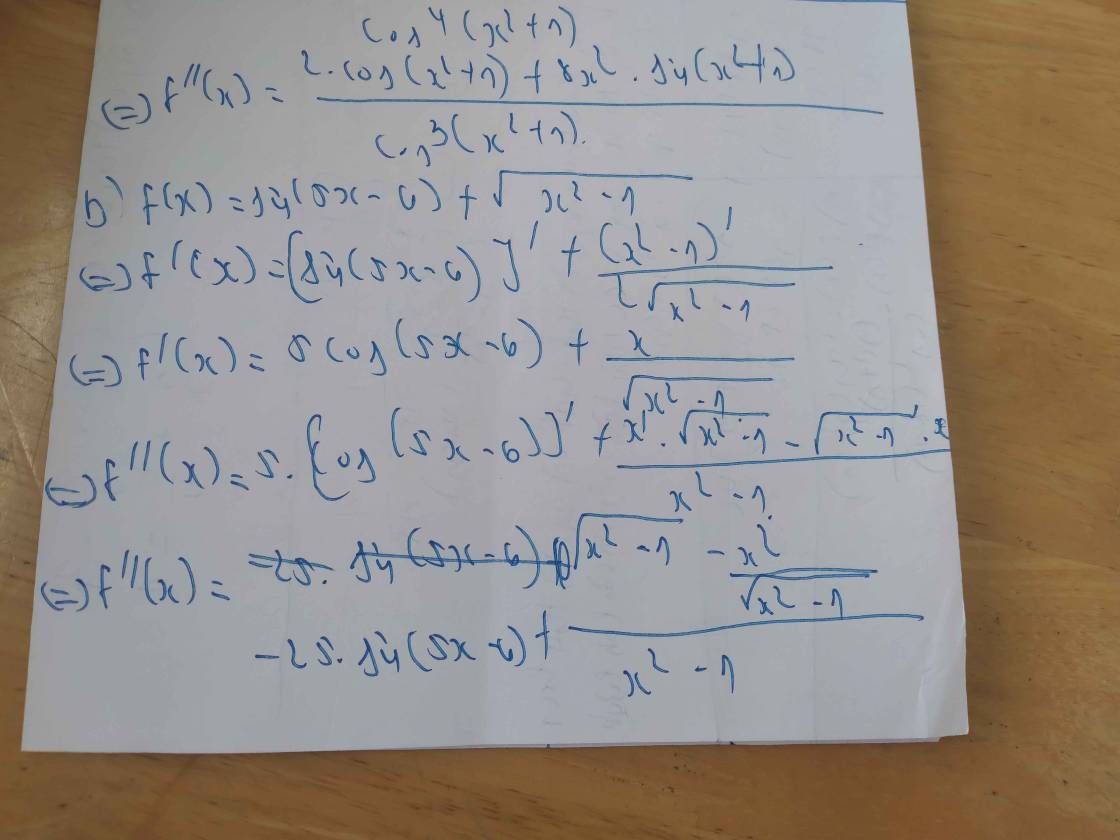 cos⁴(x²+1)
(=) f''(x) = (2.cos(x²+1) + 8x².sin(x²+1)) / cos³(x²+1).
b) f(x) = sin(5x-6) + √(x²-1)
(=) f'(x) = [sin(5x-6)]' + (x²-1)' / 2√(x²-1)
(=) f'(x) = 5cos(5x-6) + x / √(x²-1)
(=) f''(x) = 5.[cos(5x-6)]' + (x'.√(x²-1) - √(x²-1)'.x) / (x²-1)
(=) f''(x) = -25.sin(5x-6) + (√(x²-1) - x²/√(x²-1)) / (x²-1)